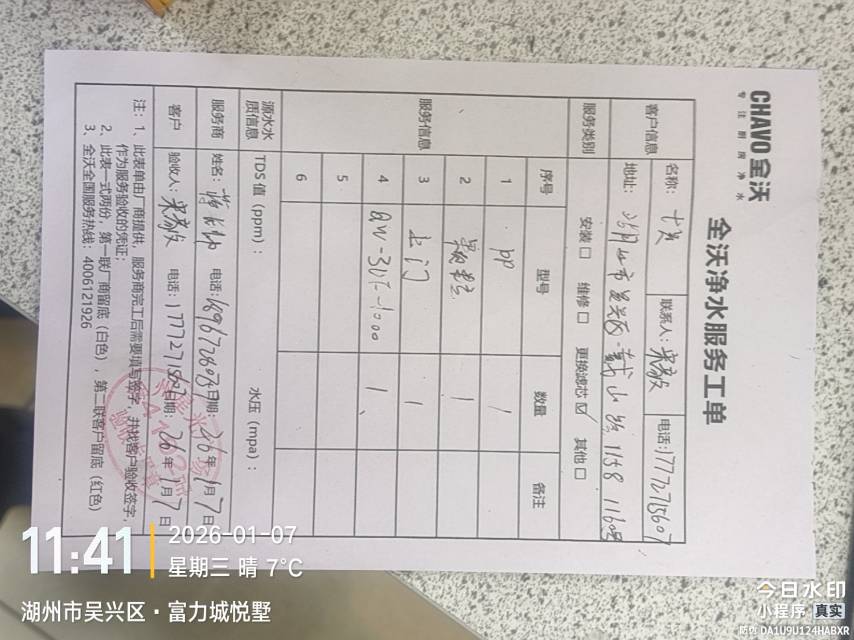 CHAVO全沃
专注厨房净水
全沃净水服务工单
客户信息 名称： 联系人： 电话：17772715607
地址：湖州市吴兴区 戴山路1158 1160号
服务类别 安装□ 维修□ 更换滤芯☑ 其他□
服务信息 序号 型号 数量 备注
1 PP 1
2 1
3 上门 1
4 1
5
6
源水水质信息 TDS值（ppm）： 水压（mpa）：
服务商 姓名： 电话： 日期：26年1月7日
客户 验收人： 电话：17772715607 日期：26年1月7日
注：1、此表单由厂商提供，服务商完工后需要填写签字，并找客户验收签字，
作为服务验收的凭证；
2、此表一式两份，第一联厂商留底（白色），第二联客户留底（红色）
3、全沃全国服务热线：4006121926
11:41
2026-01-07
星期三 晴 7℃
湖州市吴兴区·富力城悦墅
今日水印
小程序 真实
防伪 DA1U9U124HABXR